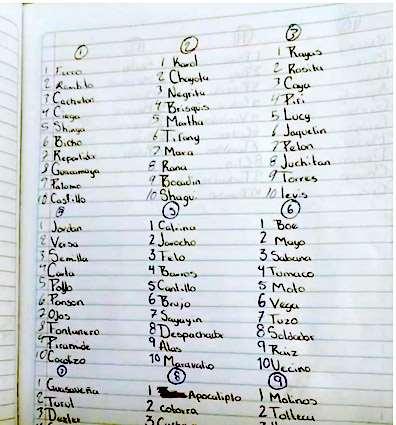 1
1 Forro
2 Rombito
3 Cacheton
4 Ciega
5 Shinga
6 Bicho
7 Repartidor
8 Guacamaya
9 Palomo
10 Castillo
2
1 Karol
2 Chayota
3 Negrita
4 Brisquis
5 Martha
6 Tifany
7 Mara
8 Rana
9 Bocadin
10 Shagu
3
1 Rayas
2 Rosita
3 Caya
4 Piri
5 Lucy
6 Jaquelin
7 Pelon
8 Juchitan
9 Torres
10 levis
1 Jordan
2 Versa
3 Semilla
4 Carla
5 Pollo
6 Ponson
7 Ojos
8 Fontanero
9 Piramide
10 Cocolzo
5
1 Catrina
2 Jarocho
3 Felo
4 Barros
5 Cantillo
6 Brujo
7 Sayayin
8 Despachador
9 Alas
10 Maravatio
6
1 Boe
2 Mayo
3 Sabana
4 Tumaco
5 Moto
6 Vega
7 Tuzo
8 Soldador
9 Ruiz
10 Vecino
7
1 Guasaveña
2 Turul
3 Dexter
8
1 Apocalipto
2 cotorra
9
1 Molinos
2 Tolteca